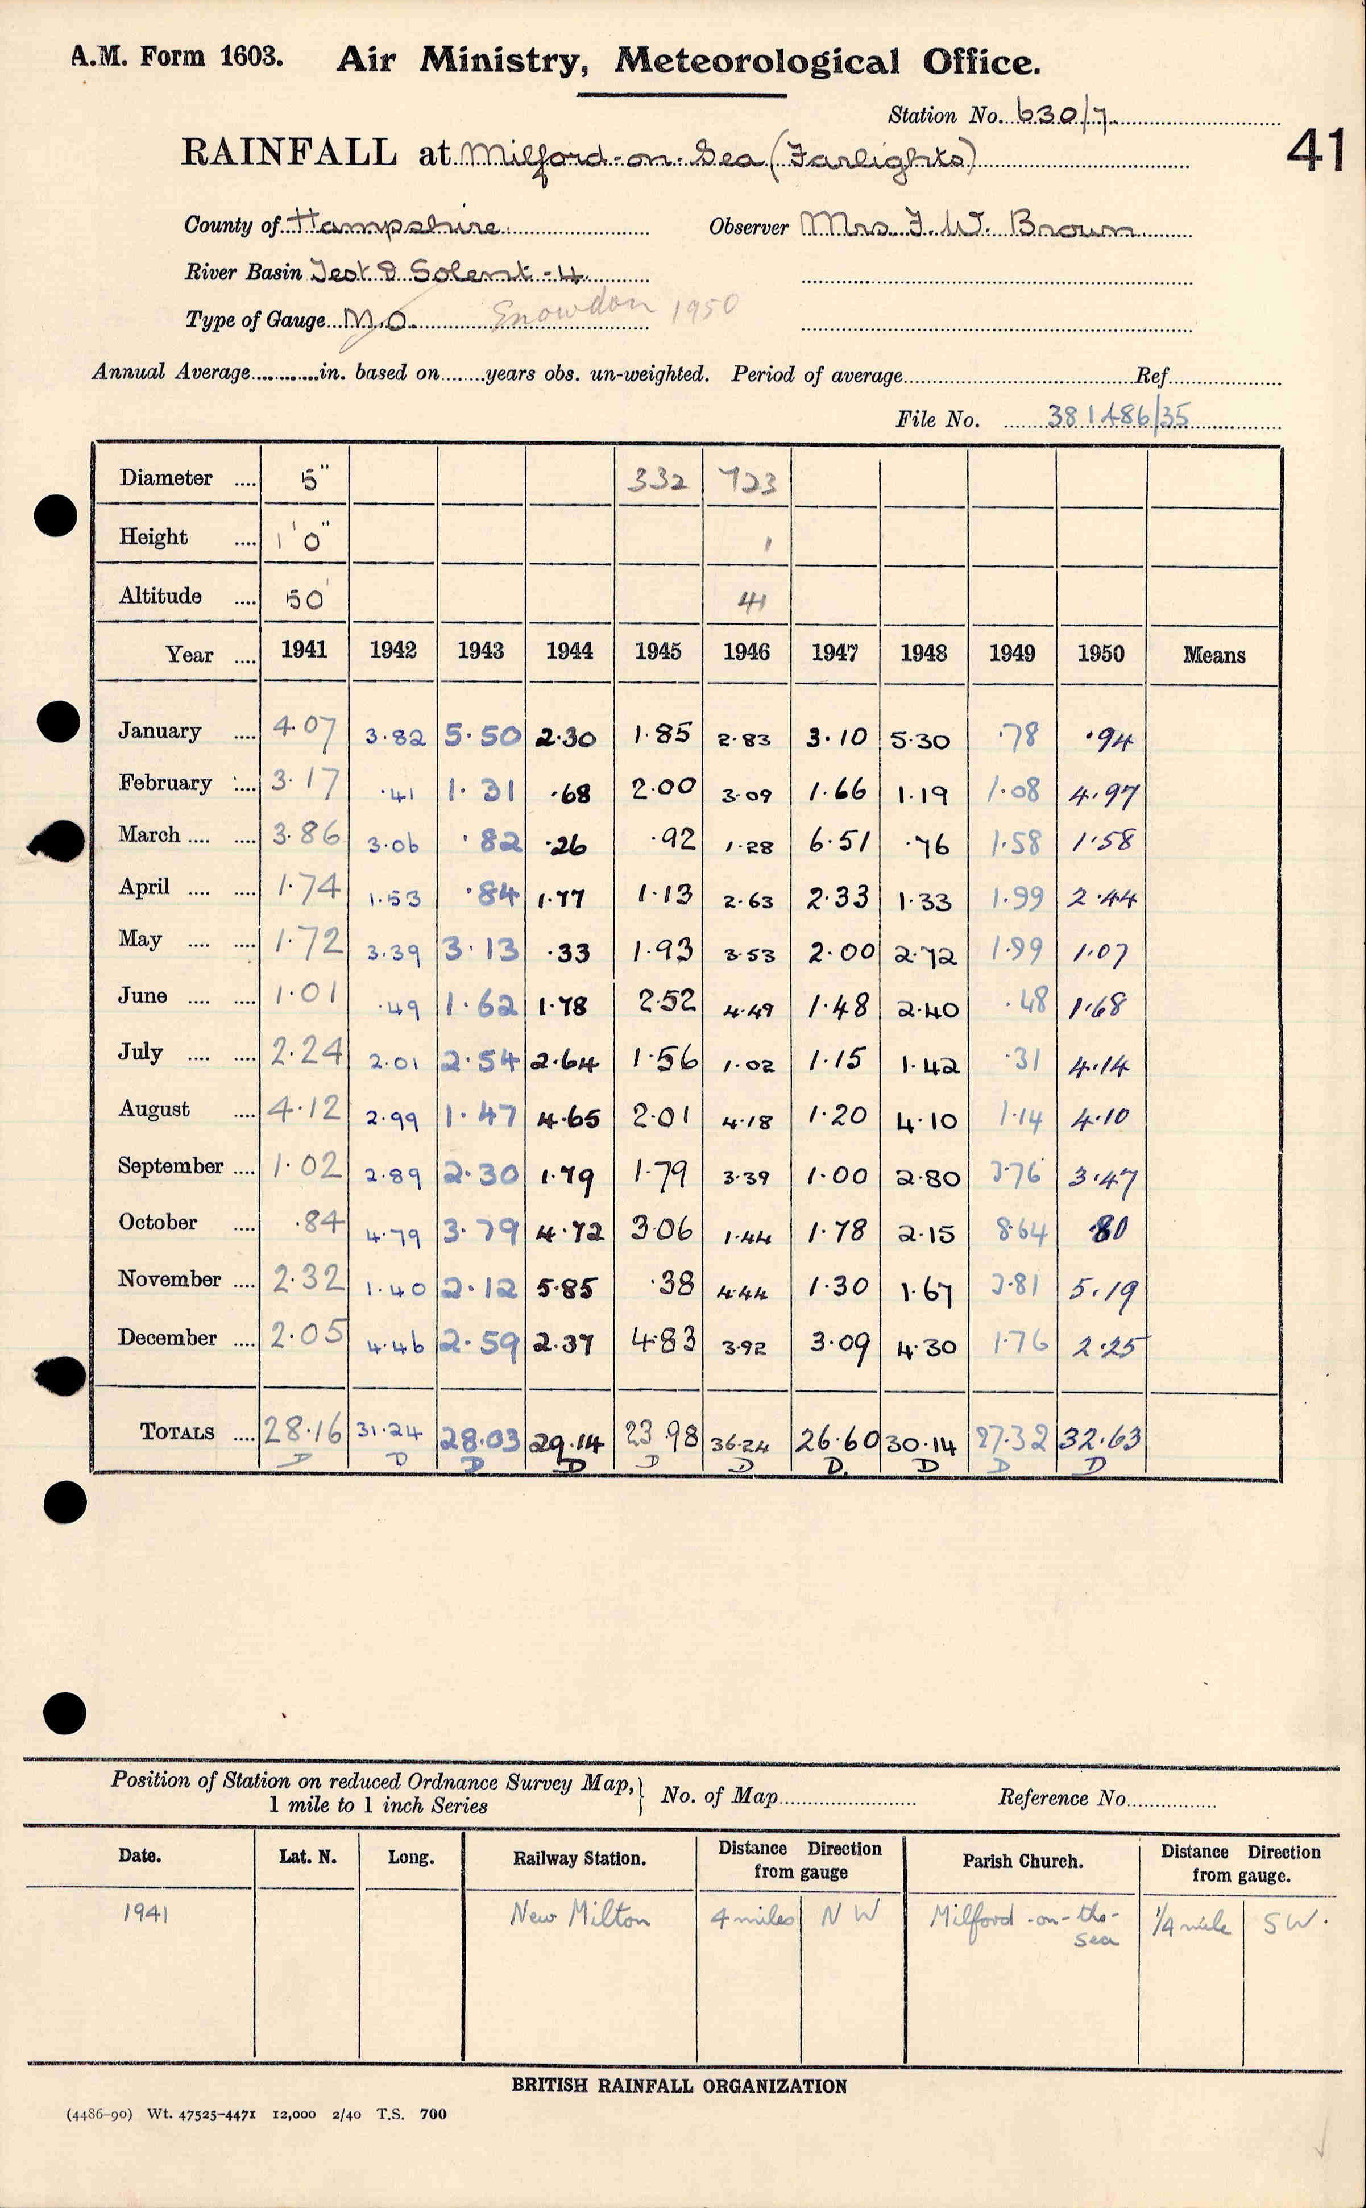 A.M. Form 1603. Air Ministry, Meteorological Office.
Station No. 630/7.
41
RAINFALL at Milford-on-Sea (Farlights)
County of Hampshire Observer Mrs F. W. Brown
River Basin Test & Solent -4
Type of Gauge M.O. Snowdon 1950
Annual Average............in. based on........years obs. un-weighted. Period of average........Ref........
File No. 381486/35
Diameter .... 5" 332 723
Height .... 1'0" 1
Altitude .... 50' 41
Year .... 1941 1942 1943 1944 1945 1946 1947 1948 1949 1950 Means
January .... 4.07 3.82 5.50 2.30 1.85 2.83 3.10 5.30 .78 .94
February .... 3.17 .41 1.31 .68 2.00 3.09 1.66 1.19 1.08 4.97
March .... .... 3.86 3.06 .82 .26 .92 1.28 6.51 .76 1.58 1.58
April .... .... 1.74 1.53 .84 1.77 1.13 2.63 2.33 1.33 1.99 2.44
May .... .... 1.72 3.39 3.13 .33 1.93 3.53 2.00 2.72 1.99 1.07
June .... .... 1.01 .49 1.62 1.78 2.52 4.49 1.48 2.40 .48 1.68
July .... .... 2.24 2.01 2.54 2.64 1.56 1.02 1.15 1.42 .31 4.14
August .... 4.12 2.99 1.47 4.65 2.01 4.18 1.20 4.10 1.14 4.10
September .... 1.02 2.89 2.30 1.79 1.79 3.39 1.00 2.80 3.76 3.47
October .... .84 4.79 3.79 4.72 3.06 1.44 1.78 2.15 8.64 .80
November .... 2.32 1.40 2.12 5.85 .38 4.44 1.30 1.67 3.81 5.19
December .... 2.05 4.46 2.59 2.37 4.83 3.92 3.09 4.30 1.76 2.25
TOTALS .... 28.16 31.24 28.03 29.14 23.98 36.24 26.60 30.14 27.32 32.63
D D D D D D D. D D D
Position of Station on reduced Ordnance Survey Map, } No. of Map........ Reference No........
1 mile to 1 inch Series
Date. Lat. N. Long. Railway Station. Distance Direction from gauge Parish Church. Distance Direction from gauge.
1941 New Milton 4 miles N W Milford-on-the- 1/4 mile S W.
Sea
BRITISH RAINFALL ORGANIZATION
(4486-90) Wt. 47525-4471 12,000 2/40 T.S. 700